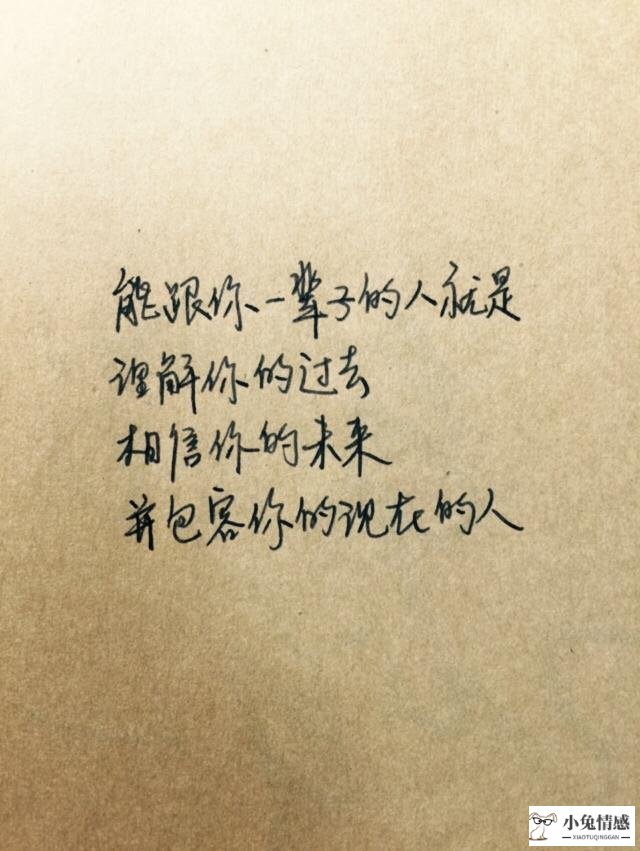 能跟你一辈子的人就是
理解你的过去
相信你的未来
并包容你的现在的人
小兔情感
XIAOTUQINGGAN